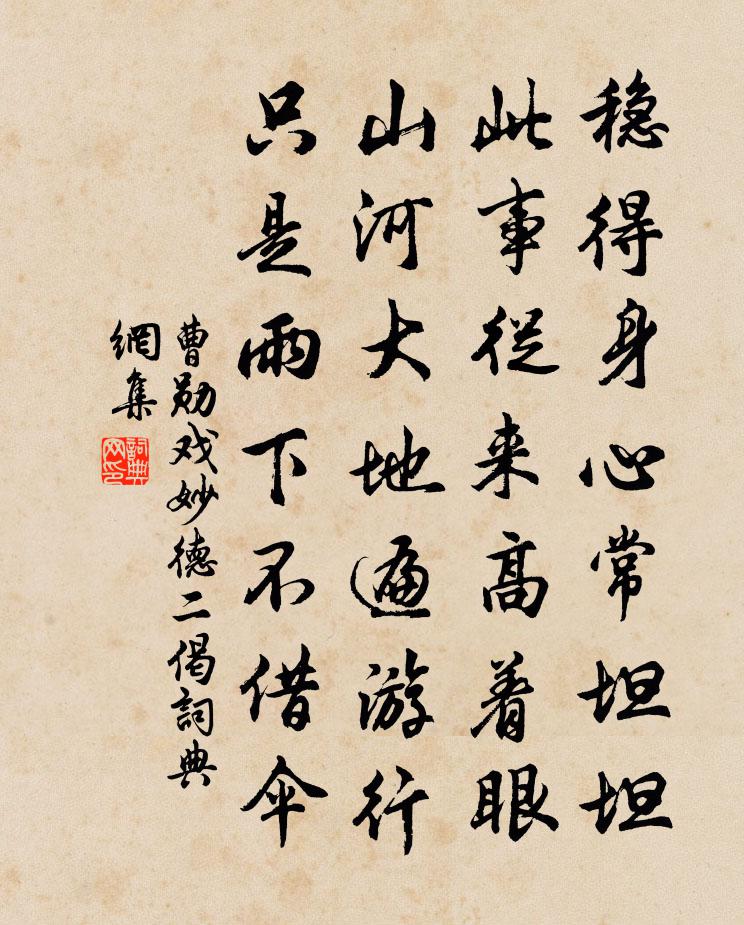 稳得身心常坦坦
此事從来高着眼
山河大地遍游行
只是雨下不借伞
曹勋戏妙德二偈詞典
網集
詞典网印